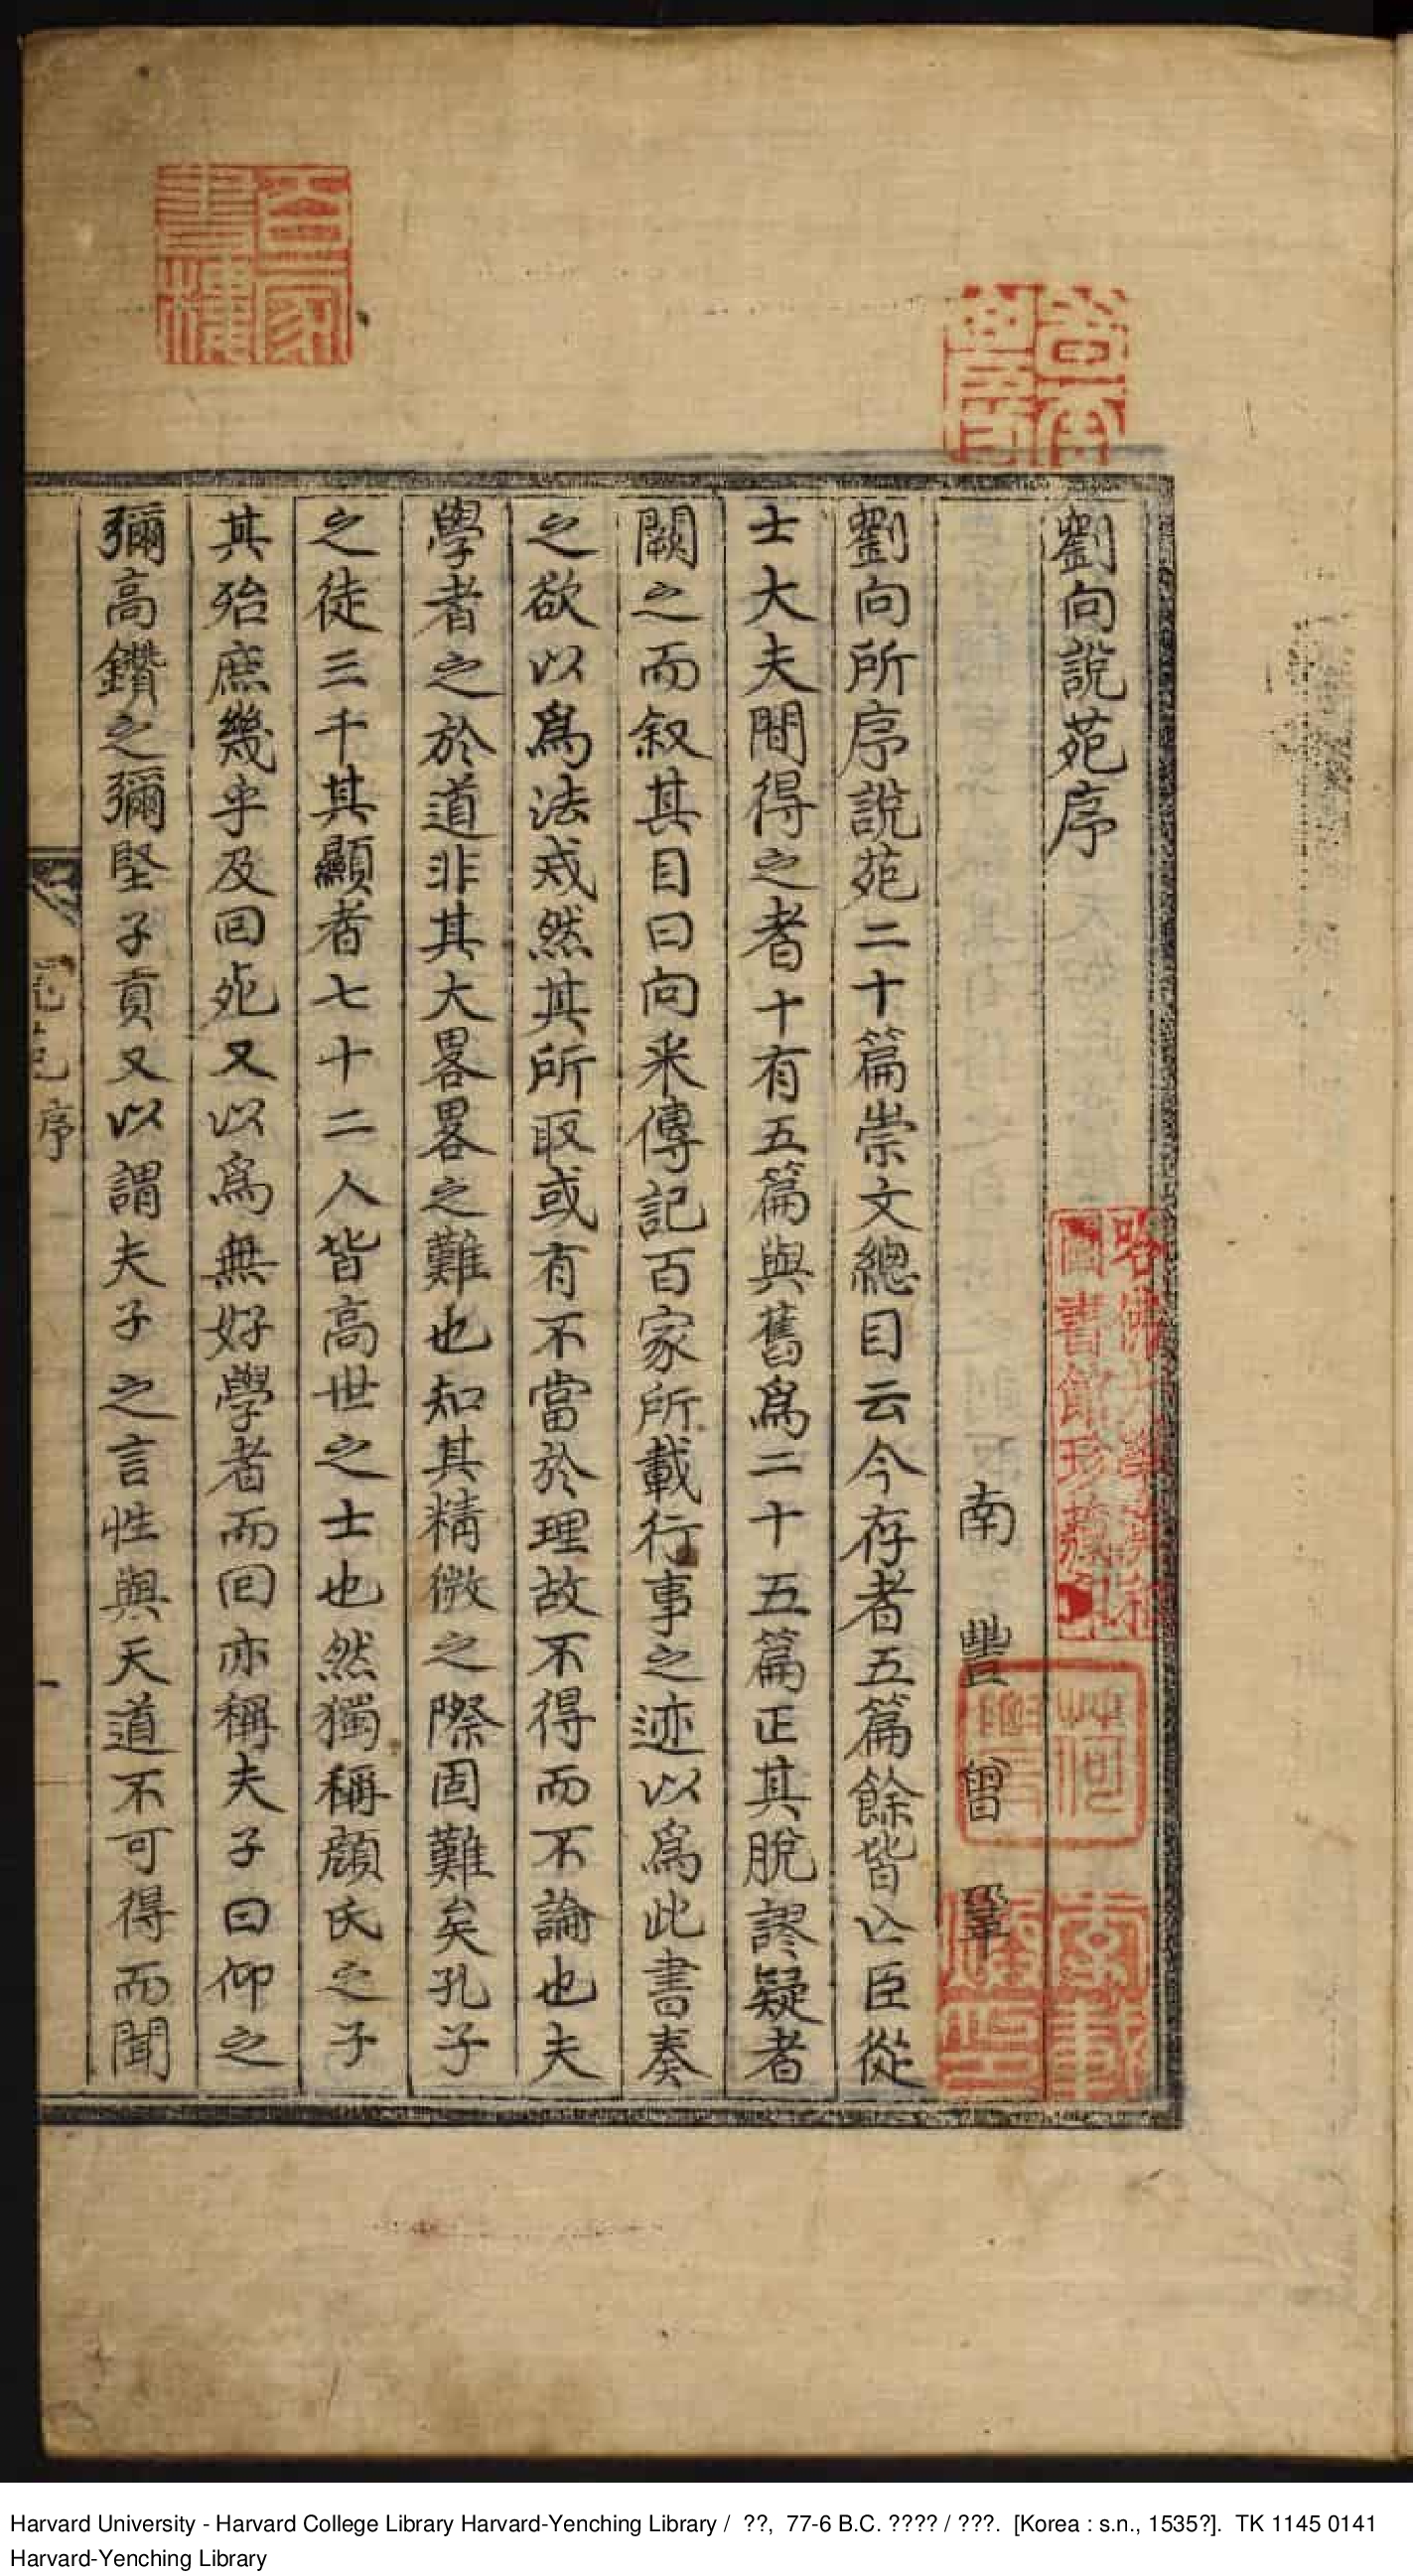 劉向說苑序
南豐曾鞏
劉向所序說苑二十篇崇文總目云今存者五篇餘皆亾臣從
士大夫間得之者十有五篇與舊爲二十五篇正其脫謬疑者
闕之而叙其目曰向采傳記百家所載行事之迹以爲此書奏
之欲以爲法戒然其所取或有不當於理故不得而不論也夫
學者之於道非其大畧畧之難也知其精微之際固難矣孔子
之徒三千其顯者七十二人皆高世之士也然獨稱顔氏之子
其殆庶幾乎及回死又以爲無好學者而回亦稱夫子曰仰之
彌高鑽之彌堅子貢又以謂夫子之言性與天道不可得而聞
序
哈佛大學漢和
圖書館珍藏印
Harvard University - Harvard College Library Harvard-Yenching Library / ??, 77-6 B.C. ???? / ???. [Korea : s.n., 1535?]. TK 1145 0141
Harvard-Yenching Library